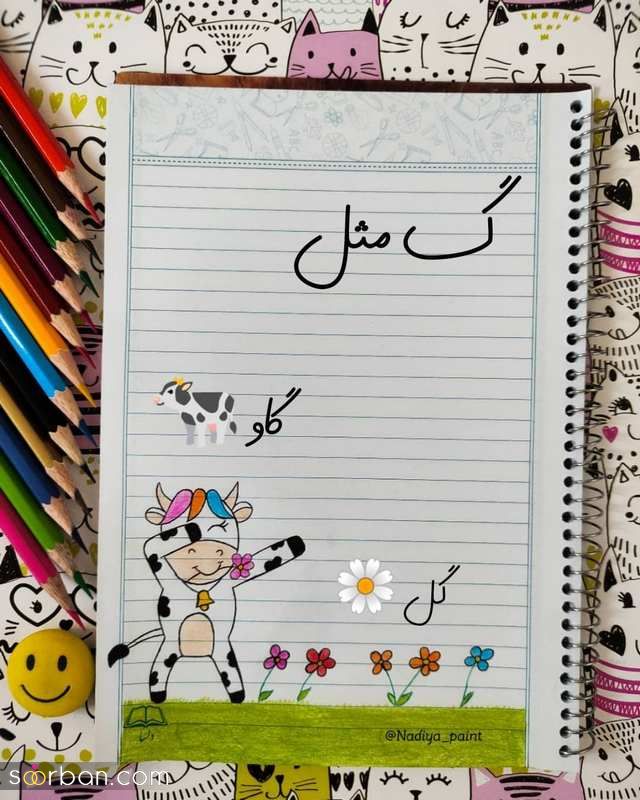 گ مثل
گاو
گل
@Nadiya_paint
soorban.com